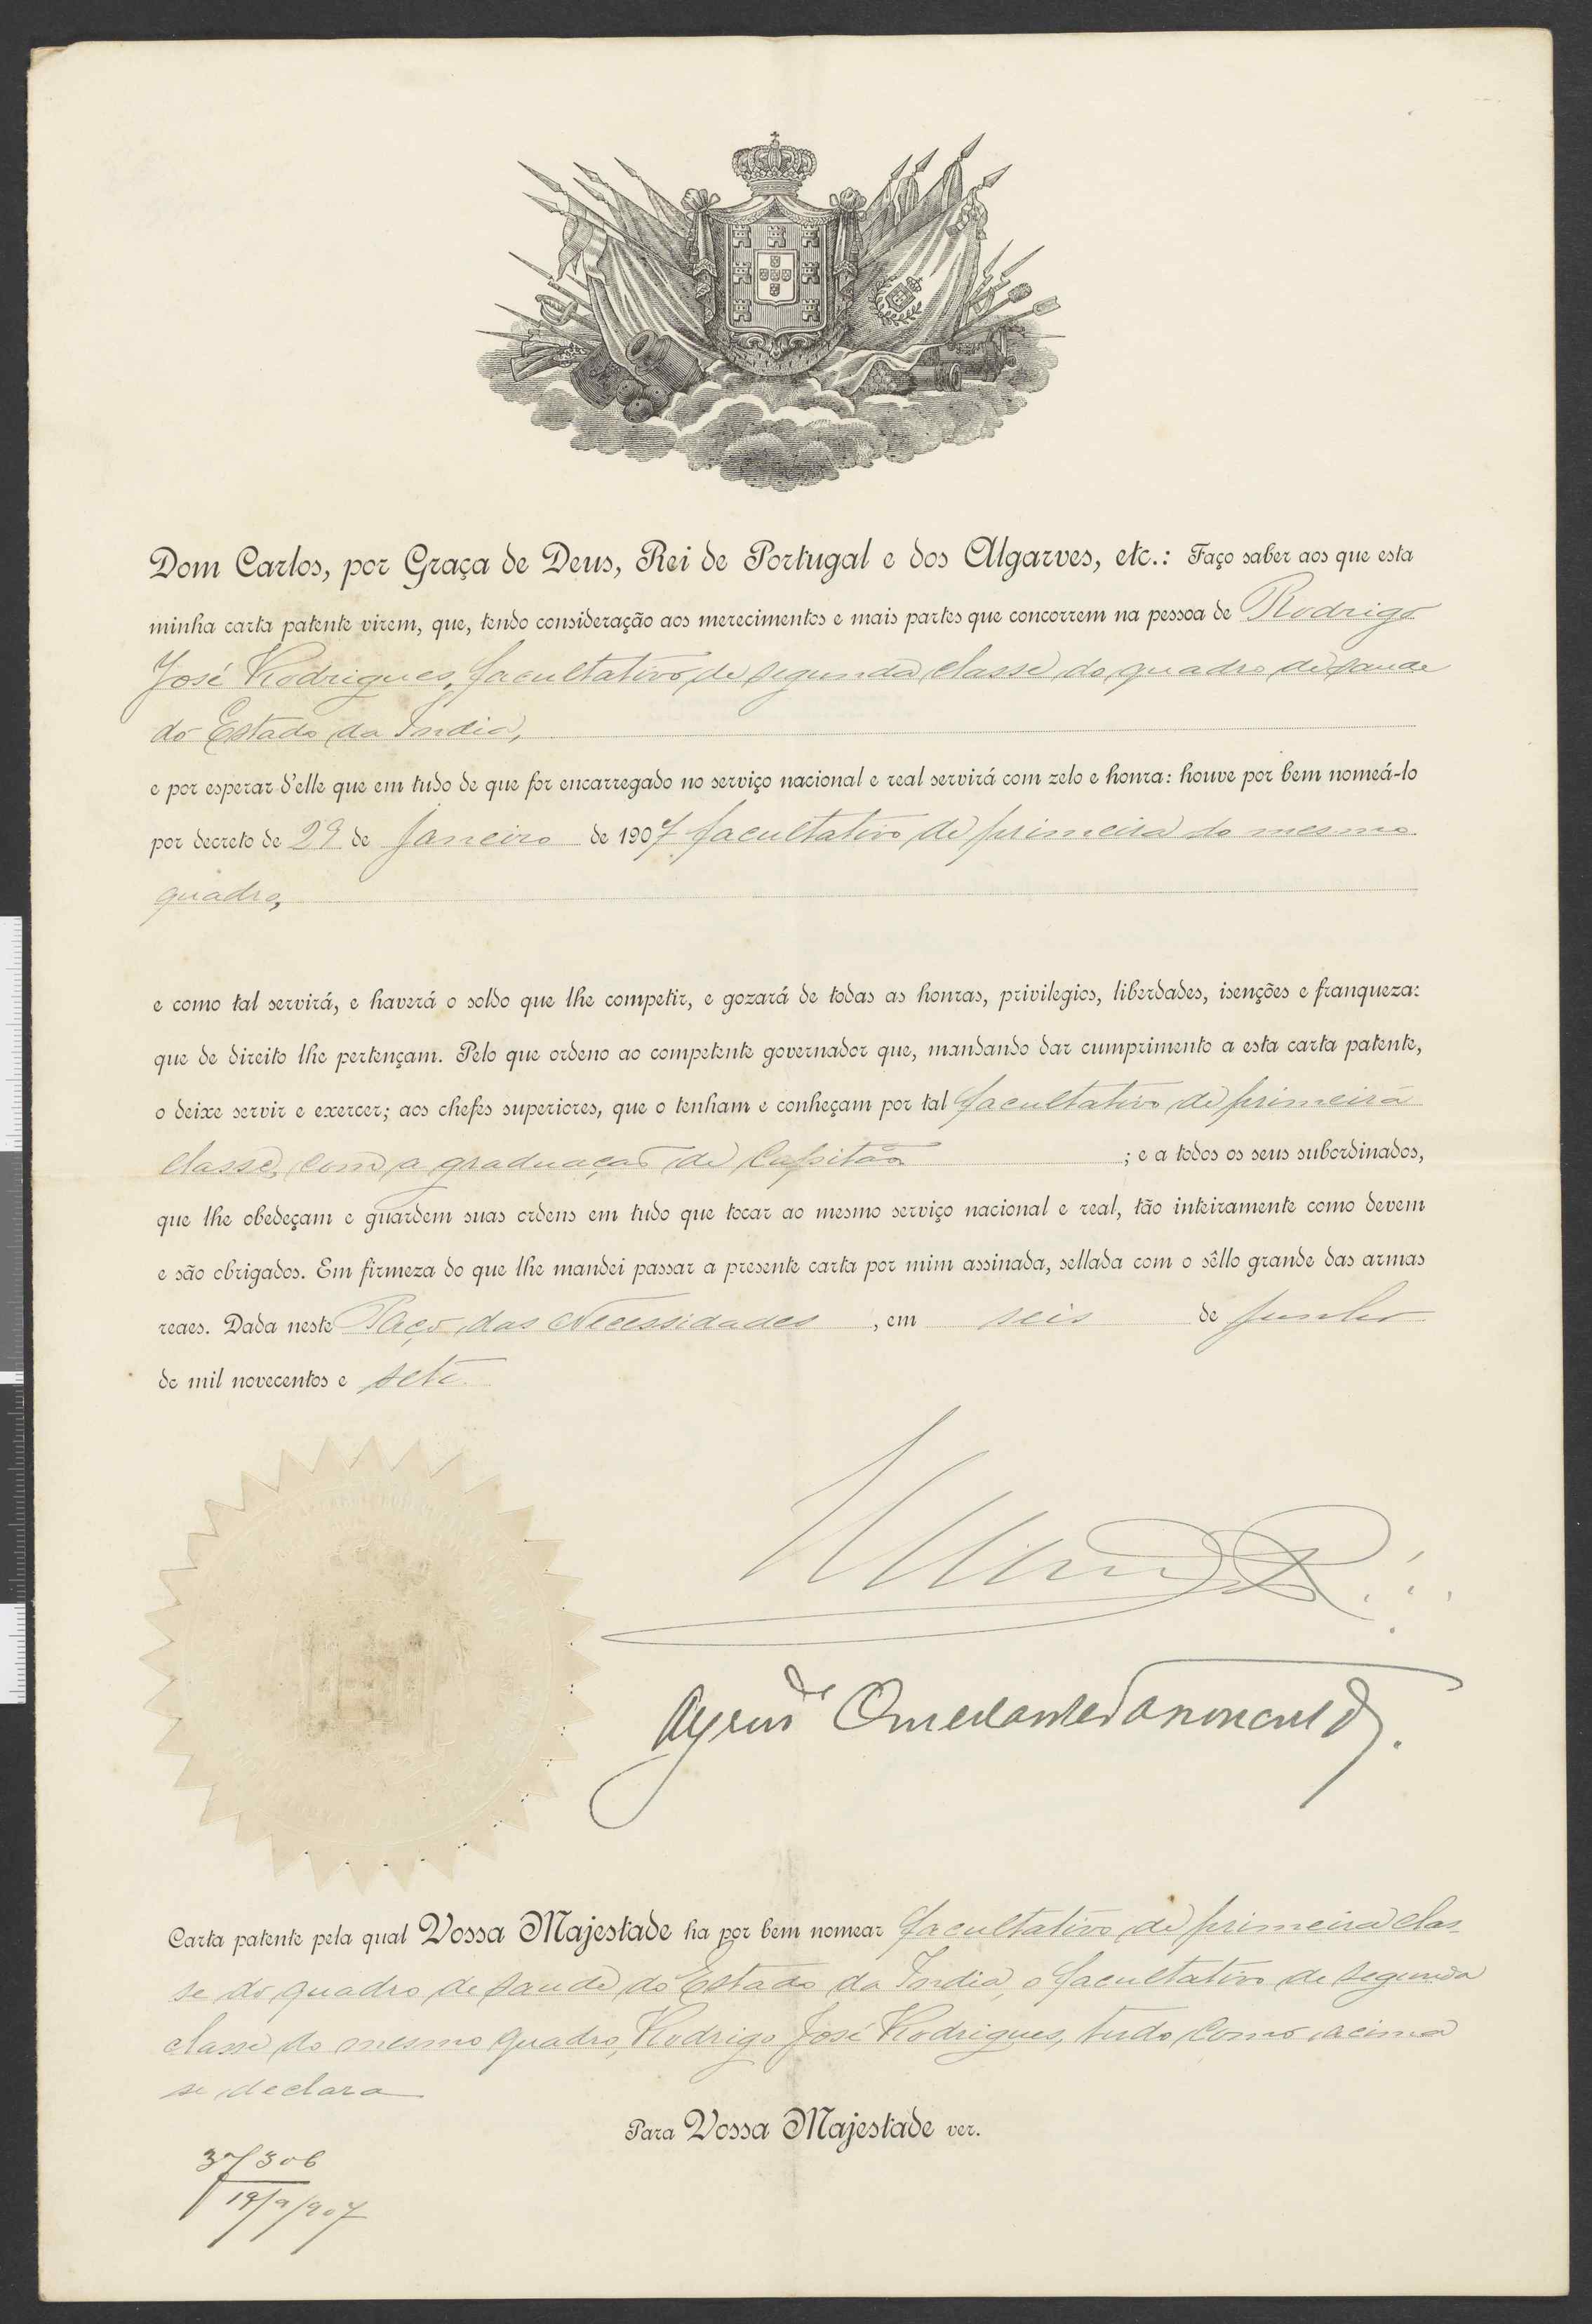 Dom Carlos, por Graça de Deus, Rei de Portugal e dos Algarves, etc.: Faço saber aos que esta
minha carta patente virem, que, tendo consideração aos merecimentos e mais partes que concorrem na pessoa de Rodrigo
José Rodrigues, facultativo de segunda classe do quadro de saude
do Estado da India,
e por esperar d'elle que em tudo de que for encarregado no serviço nacional e real servirá com zelo e honra: houve por bem nomeá-lo
por decreto de 29 de Janeiro de 1907 facultativo de primeira do mesmo
quadro,
e como tal servirá, e haverá o soldo que lhe competir, e gozará de todas as honras, privilegios, liberdades, isenções e franqueza:
que de direito lhe pertençam. Pelo que ordeno ao competente governador que, mandando dar cumprimento a esta carta patente,
o deixe servir e exercer; aos chefes superiores, que o tenham e conheçam por tal facultativo de primeira
classe, com a graduação de Capitão ; e a todos os seus subordinados,
que lhe obedeçam e guardem suas ordens em tudo que tocar ao mesmo serviço nacional e real, tão inteiramente como devem
e são obrigados. Em firmeza do que lhe mandei passar a presente carta por mim assinada, sellada com o sêllo grande das armas
reaes. Dada neste Paço das Necessidades, em seis de Junho
de mil novecentos e sete.
Carta patente pela qual Vossa Majestade ha por bem nomear facultativo de primeira clas-
se do quadro de saude do Estado da India, o facultativo de segunda
classe do mesmo quadro, Rodrigo José Rodrigues, tudo como acima
se declara
Para Vossa Majestade ver.
37306
19/9/907